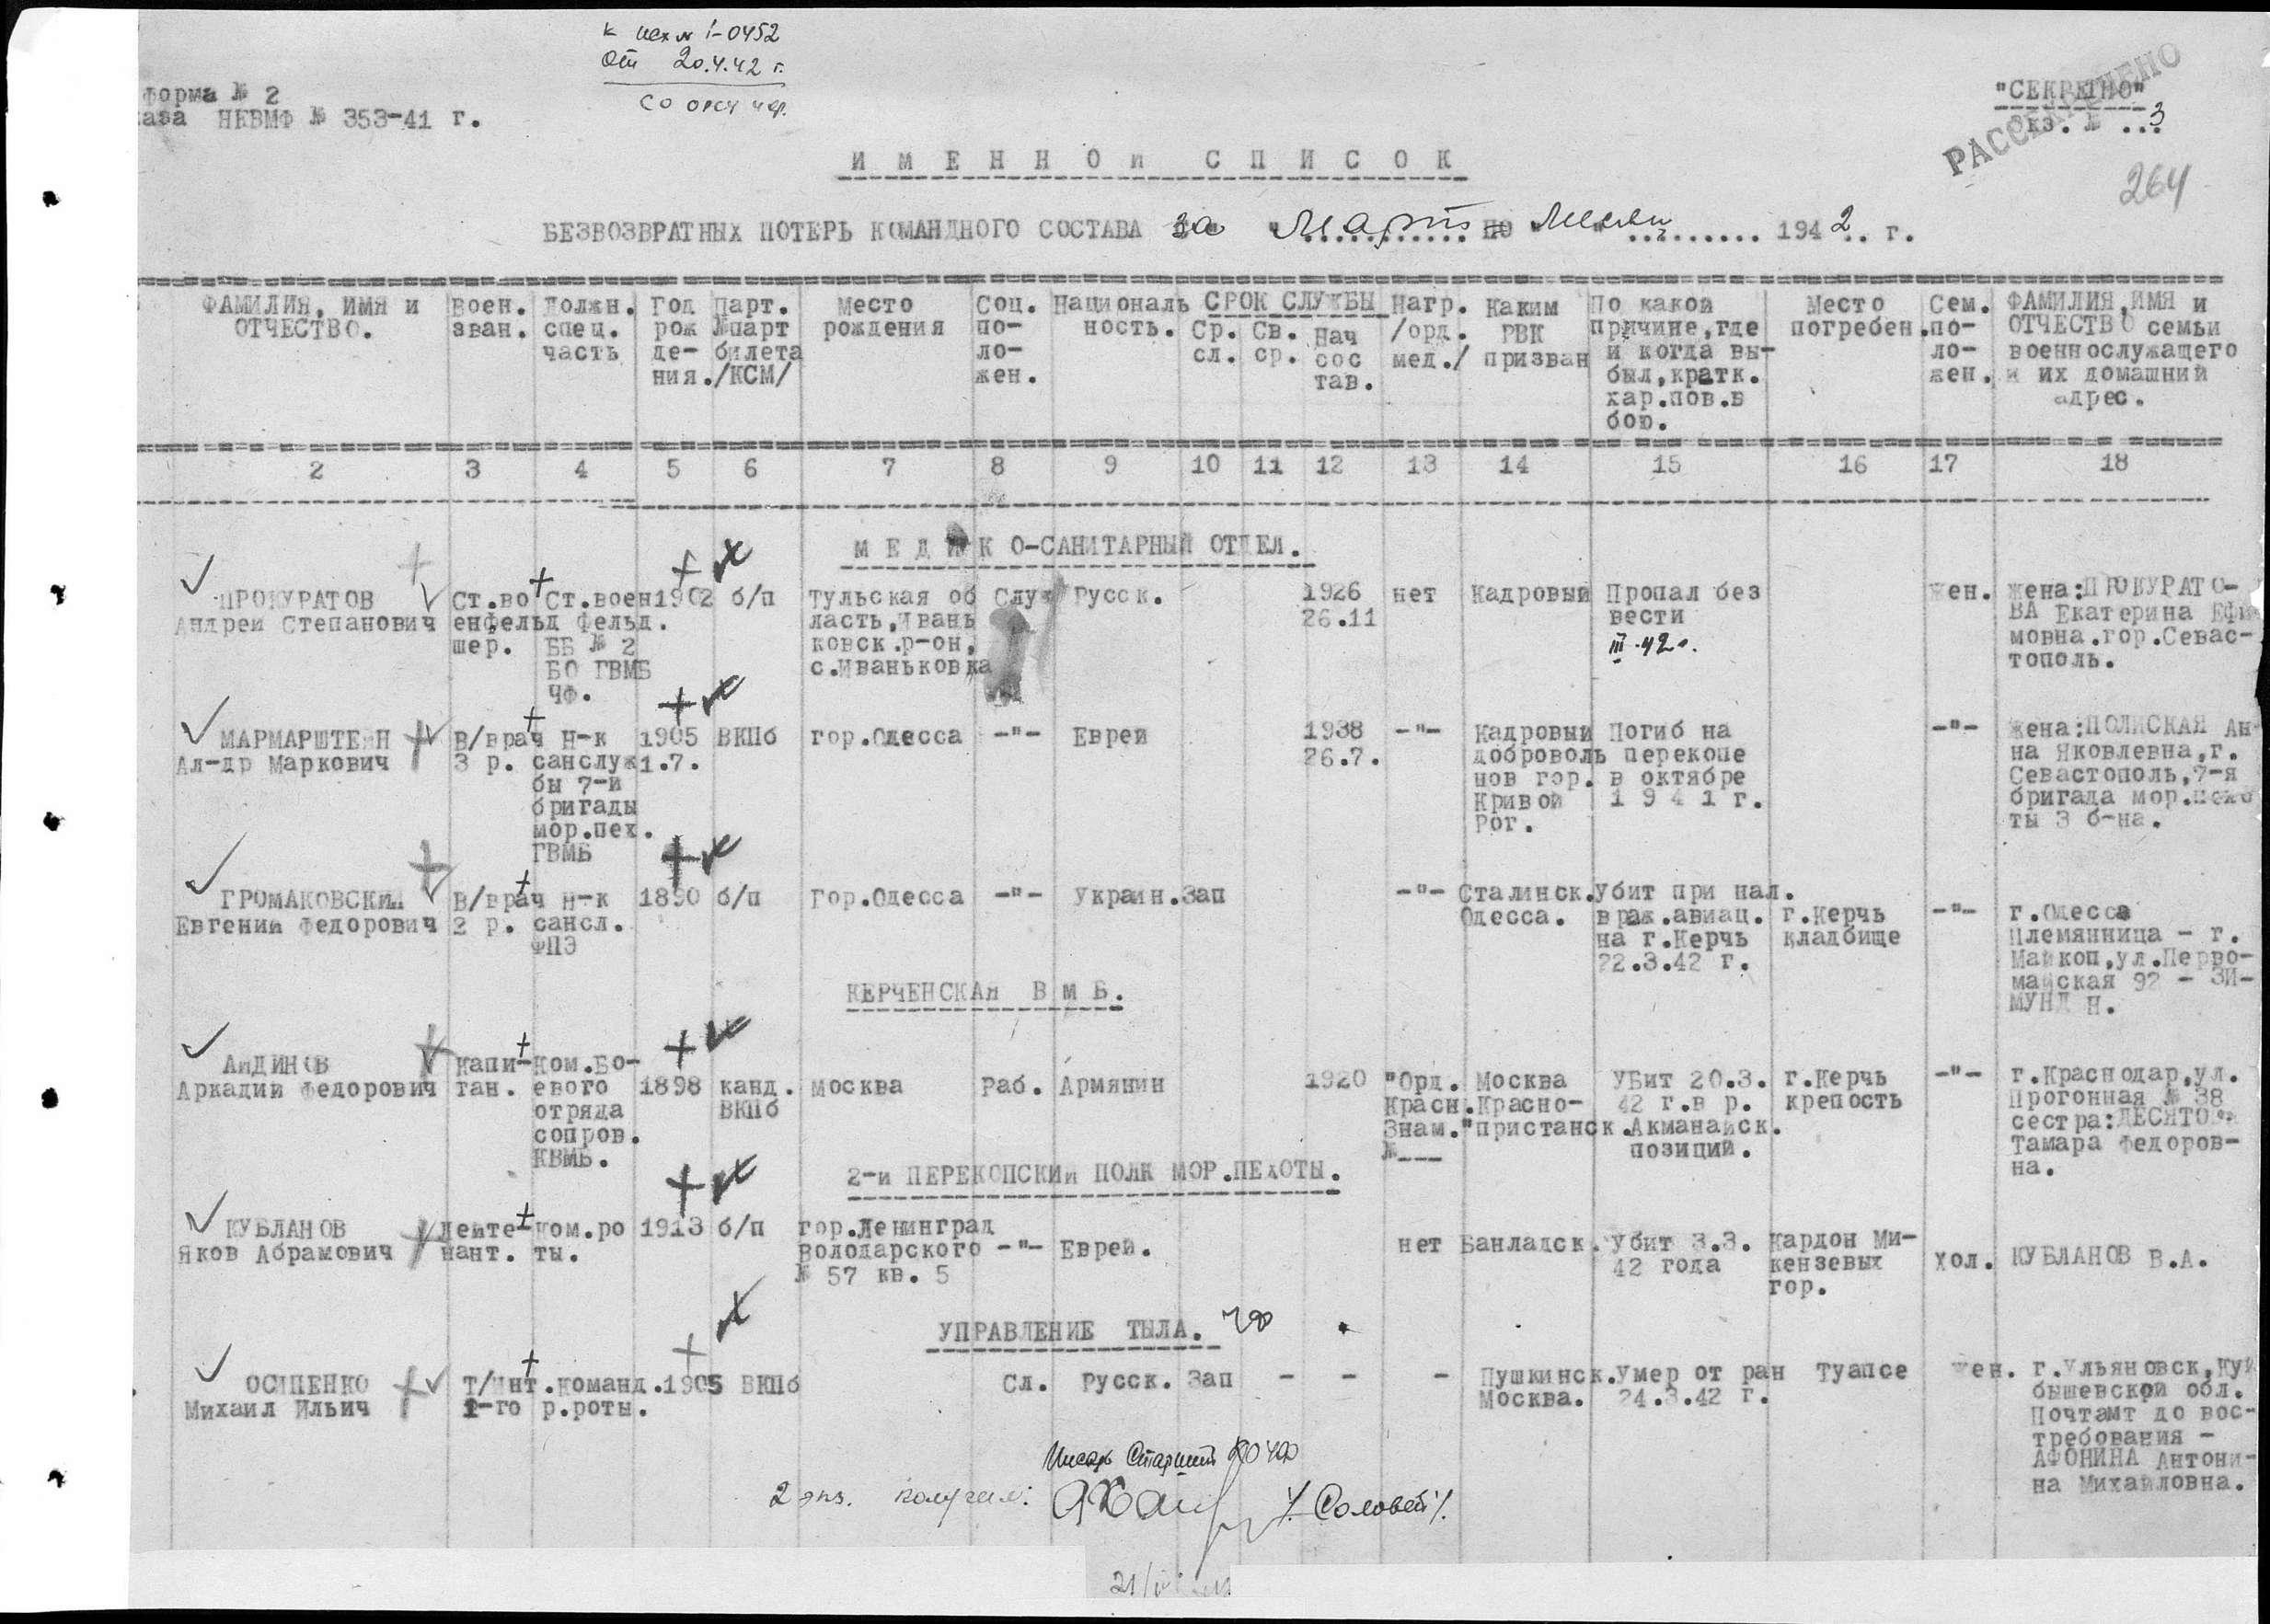 к исх № 1-0452
От 20.4.42 г.
форма № 2
каза НКВМФ № 353-41 г.
"СЕКРЕТНО"
Экз. № ...3
РАССЕКРЕЧЕНО
264
ИМЕННОЙ СПИСОК
БЕЗВОЗВРАТНЫХ ПОТЕРЬ КОМАНДНОГО СОСТАВА за " Март по Месяц 1942.. г.
ФАМИЛИЯ, ИМЯ и ОТЧЕСТВО.
Воен. зван.
Должн. спец. часть
Год рож де- ния.
Парт. №парт билета /КСМ/
Место рождения
Соц. по- ло- жен.
Националь ность.
СРОК СЛУЖБЫ
Ср. сл.
Св. ср.
Нач сос тав.
Нагр. /орд. мед./
Каким РВК призван
По какой причине,где и когда вы- был,кратк. хар.пов.в бою.
Место погребен.
Сем. по- ло- жен.
ФАМИЛИЯ,ИМЯ и ОТЧЕСТВО семьи военнослужащего и их домашний адрес.
2 3 4 5 6 7 8 9 10 11 12 13 14 15 16 17 18
МЕДИКО-САНИТАРНЫЙ ОТДЕЛ.
ПРОКУРАТОВ Ст.во Ст.воен 1902 б/п Тульская об Служ Русск. 1926 нет Кадровый Пропал без Жен. жена:ПРОКУРАТО-
Андрей Степанович енфельд фельд. ласть,Ивань 26.11 вести ВА Екатерина Ефи
шер. ББ № 2 ковск.р-он, III.42г. мовна.гор.Севас-
БО ГВМБ с.Иваньковка тополь.
ЧФ.
МАРМАРШТЕЙН В/врач Н-к 1905 ВКПб гор.Одесса -"- Еврей 1938 -"- Кадровый Погиб на -"- жена:ПОЛИСКАЯ Ан
Ал-др Маркович 3 р. санслуж 1.7. 26.7. доброволь перекопе на Яковлевна,г.
бы 7-й нов гор. в октябре Севастополь,7-я
бригады Кривой 1941 г. бригада мор.пехо
мор.пех. Рог. ты 3 б-на.
ГВМБ
ГРОМАКОВСКИЙ В/врач Н-к 1890 б/п Гор.Одесса -"- Украин. Зап -"- Сталинск. Убит при нал.
Евгений Федорович 2 р. сансл. Одесса. враж.авиац. г.Керчь -"- г.Одесса
ФПЭ на г.Керчь кладбище Племянница - г.
22.3.42 г. Майкоп,ул.Перво-
майская 92 - ЗИ-
МУНД Н.
КЕРЧЕНСКАЯ В М Б.
АЙДИНОВ Капи- Ком.Бо-
Аркадий Федорович тан. евого 1898 канд. Москва Раб. Армянин 1920 "Орд. Москва Убит 20.3. г.Керчь -"- г.Краснодар,ул.
отряда ВКПб Красн. Красно- 42 г.в р. крепость Прогонная № 38
сопров. Знам." пристанск. Акманайск. сестра:ДЕСЯТОВА
КВМБ. №--- позиций. Тамара Федоров-
на.
2-й ПЕРЕКОПСКИЙ ПОЛК МОР.ПЕХОТЫ.
КУБЛАНОВ Лейте- Ком.ро 1913 б/п гор.Ленинград
Яков Абрамович нант. ты. Володарского -"- Еврей. нет Банладск. Убит 3.3. Кардон Ми- Хол. КУБЛАНОВ В.А.
№ 57 кв. 5 42 года кензевых
гор.
УПРАВЛЕНИЕ ТЫЛА. ЧФ
ОСИПЕНКО Т/Инт. Команд. 1905 ВКПб Сл. Русск. Зап - - - Пушкинск. Умер от ран Туапсе Жен. г.Ульяновск,Куй
Михаил Ильич 1-го р. роты. Москва. 24.3.42 г. бышевской обл.
Почтамт до вос-
требования -
АФОНИНА Антони-
на Михайловна.
Писарь Старший
2 экз. получил: /Соловей/.